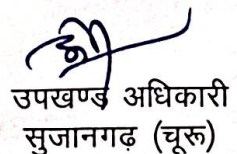 उपखण्ड अधिकारी
सुजानगढ़ (चूरू)